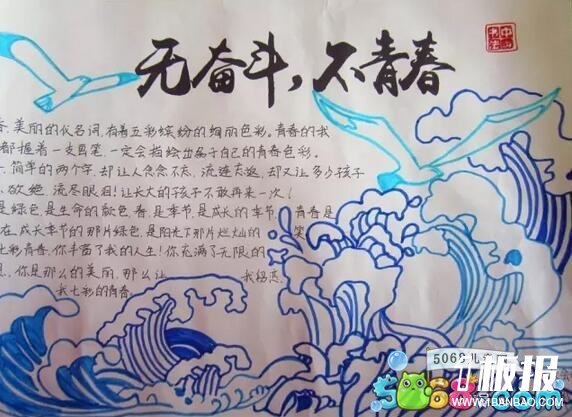 无奋斗，不青春
中国
书法
春，美丽的代名词，有着五彩缤纷的绚丽色彩。青春的我
都握着一支画笔，一定会描绘出属于自己的青春色彩。
简单的两个字，却让人念念不忘，流连忘返，却又让多少孩子
欲绝，流尽眼泪！让长大的孩子不敢再来一次！
是绿色，是生命的颜色，春，是季节，是成长的季节，青春是
在成长季节的那片绿色，是阳光下那片灿烂的 笑
七彩青春，你丰富了我的人生！你充满了无限的
你是那么的美丽，那么让 我留恋。
我七彩的青春。
5068儿
板报
WWW.1BANBAO.COM